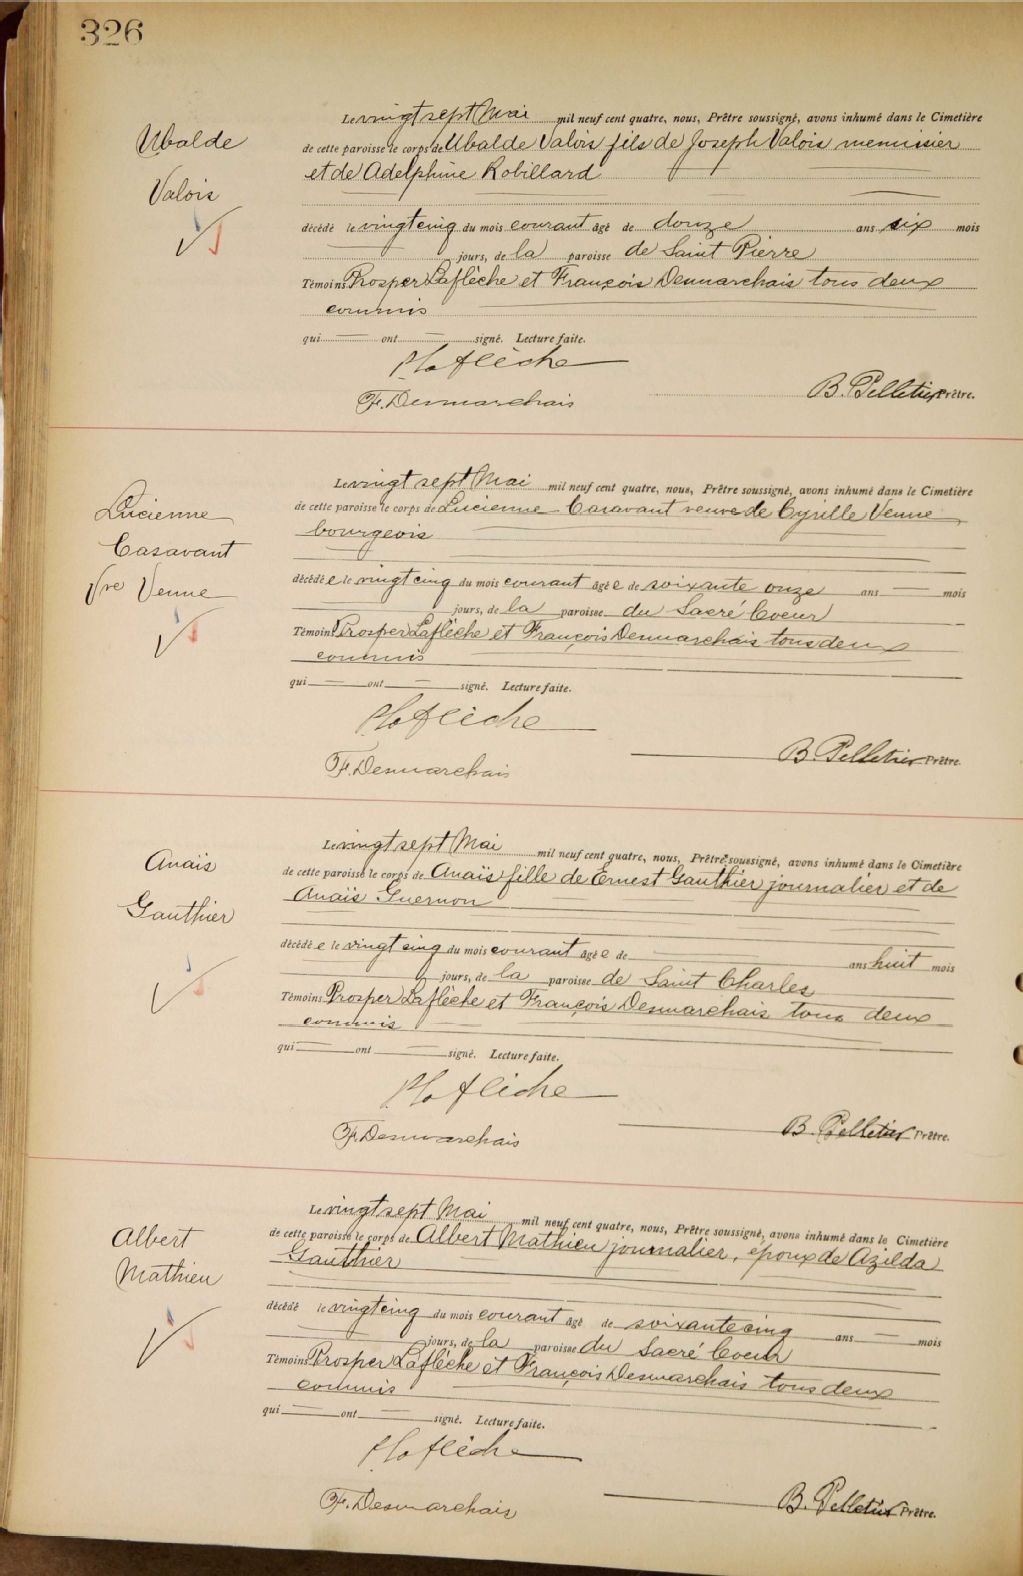 326
Ubalde
Valois
Le vingt sept Mai mil neuf cent quatre, nous, Prêtre soussigné, avons inhumé dans le Cimetière
de cette paroisse le corps de Ubalde Valois fils de Joseph Valois menuisier
et de Adelphine Robillard
décédé le vingt cinq du mois courant âgé de douze ans six mois
jours, de la paroisse de Saint Pierre
Témoins Prosper Laflèche et François Desmarchais tous deux
commis
qui ont signé. Lecture faite.
P Laflèche
F. Desmarchais
B. Pelletier Prêtre.
Lucienne
Casavant
Vve Venne
Le vingt sept Mai mil neuf cent quatre, nous, Prêtre soussigné, avons inhumé dans le Cimetière
de cette paroisse le corps de Lucienne Casavant veuve de Cyrille Venne
bourgeois
décédée le vingt cinq du mois courant âgée de soixante onze ans mois
jours, de la paroisse du Sacré Coeur
Témoins Prosper Laflèche et François Desmarchais tous deux
commis
qui ont signé. Lecture faite.
P Laflèche
F. Desmarchais
B. Pelletier Prêtre.
Anaïs
Gauthier
Le vingt sept Mai mil neuf cent quatre, nous, Prêtre soussigné, avons inhumé dans le Cimetière
de cette paroisse le corps de Anaïs fille de Ernest Gauthier journalier et de
Anaïs Guernon
décédée le vingt cinq du mois courant âgée de ans huit mois
jours, de la paroisse de Saint Charles
Témoins Prosper Laflèche et François Desmarchais tous deux
commis
qui ont signé. Lecture faite.
P Laflèche
F. Desmarchais
B. Pelletier Prêtre.
Albert
Mathieu
Le vingt sept Mai mil neuf cent quatre, nous, Prêtre soussigné, avons inhumé dans le Cimetière
de cette paroisse le corps de Albert Mathieu journalier, époux de Azilda
Gauthier
décédé le vingt cinq du mois courant âgé de soixante cinq ans mois
jours, de la paroisse du Sacré Coeur
Témoins Prosper Laflèche et François Desmarchais tous deux
commis
qui ont signé. Lecture faite.
P Laflèche
F. Desmarchais
B. Pelletier Prêtre.